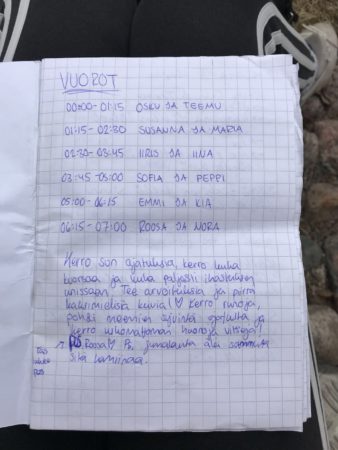 VUOROT
00:00-01:15 OSKU JA TEEMU
01:15-02:30 SUSANNA JA MARIA
02:30-03:45 IIRIS JA IINA
03:45-05:00 SOFIA JA PEPPI
05:00-06:15 EMMI JA KIA
06:15-07:00 ROOSA JA NORA
Kerro sun ajatuksia, kerro kuka
kuorsaa ja kuka paljasti ihastuksen
unissaan. Tee arvoituksia ja piirrä
kaksimielisiä kuvia! Kerro runoja,
pohdi meemien syvintä
kerro uskomattoman huonoja vitsejä!
Roosa Ps. jumalauta älä sammuta
sitä kamiinaa.